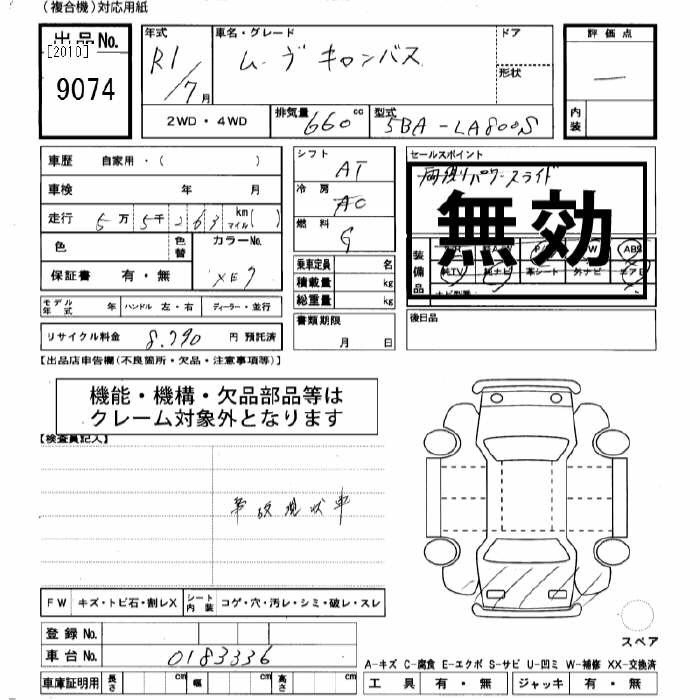 （複合機）対応用紙
出品No.
[2010]
9074
年式
R1/7月
車名・グレード
ムーヴキャンバス
ドア
形状
評価点
—
内装
2WD・4WD
排気量
660cc
型式
5BA-LA800S
車歴 自家用・( )
車検 年 月
走行 5万5千263km マイル( )
色
色替
カラーNo.
XE7
保証書 有・無
モデル年式 年 ハンドル 左・右 ディーラー・並行
リサイクル料金 8,790 円 預託済
シフト
AT
冷房
AC
燃料
G
乗車定員 名
積載量 kg
総重量 kg
書類期限
月 日
セールスポイント
両側パワースライド
無効
装備品
ABS
純TV 純ナビ 革シート 外ナビ エアB
後日品
【出品店申告欄(不良箇所・欠品・注意事項等)】
機能・機構・欠品部品等は
クレーム対象外となります
【検査員記入】
事故現状車
FW キズ・トビ石・割レX シート内装 コゲ・穴・汚レ・シミ・破レ・スレ
登録No.
車台No. 0183336
車庫証明用 長さ cm 幅 cm 高さ cm
スペア
A-キズ C-腐食 E-エクボ S-サビ U-凹ミ W-補修 XX-交換済
工具 有・無 ジャッキ 有・無